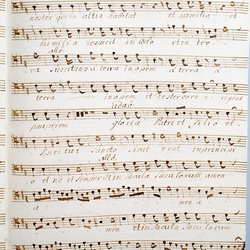 noster qui in altis habitat et humilia et
humilia respicit in coelo et in ter
all:o
ra suscitans a terra inopem a terra a
terra inopem et stercore erigens
ad:o
pauperem gloria Patri et Filio et
Spiritui sancto sicut erat in principi
all:o
o et nc et semper et in saecula saeculorum amen
a men a
men et in saecula saeculorum